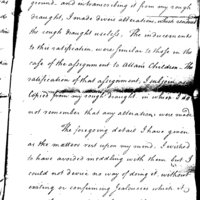 ground. and in transcribing it from my rough
draught, I made divers alterations, which rendered
the rough draught useless. The inducements
to this ratification, were similar to those in the
case of the assignment to Allain's Children. The
ratification of that assignment, I
copied from my rough draught, in which I do
not remember that any alteration was made
The foregoing detail I have given
as the matters rest upon my mind. I wished
to have avoided meddling with them but I
could not devise no way of doing it, without
creating or confirming jealousies which I